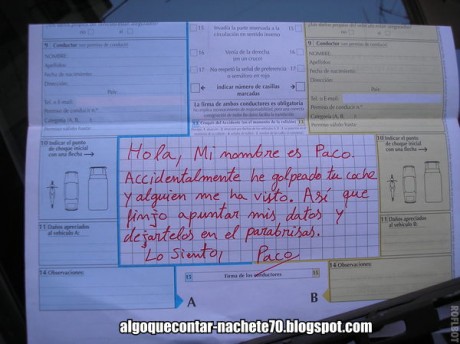 9 Conductor
NOMBRE:
Apellidos:
Fecha de nacimiento:
Dirección:
País
Tel. o E-mail:
Permiso de conducir n.º
Categoría (A, B, )
11
circulación en sentido
15
16 Venía de la derecha 16
17 No respetó la señal de preferencia 17
o semáforo en rojo
indicar número de casillas
marcadas
La firma de ambos conductores es obligatoria
9 Conductor
NOMBRE:
Apellidos:
Fecha de nacimiento:
Dirección:
País
Tel. o E-mail:
Permiso de conducir n.º
Categoría (A, B, )
10 Indicar el punto
de choque inicial
con una flecha
Hola, Mi nombre es Paco.
Accidentalmente he golpeado tu coche
y alguien me ha visto. Así que
finjo apuntar mis datos y
dejártelos en el parabrisas.
Lo siento, Paco
10 Indicar el punto
de choque inicial
con una flecha
11 Daños apreciados
al vehículo A:
11 Daños apreciados
al vehículo B:
14 Observaciones:
15 Firma de los conductores 15
14 Observaciones:
A B
algoquecontar-nachete70.blogspot.com
ROFLBOT